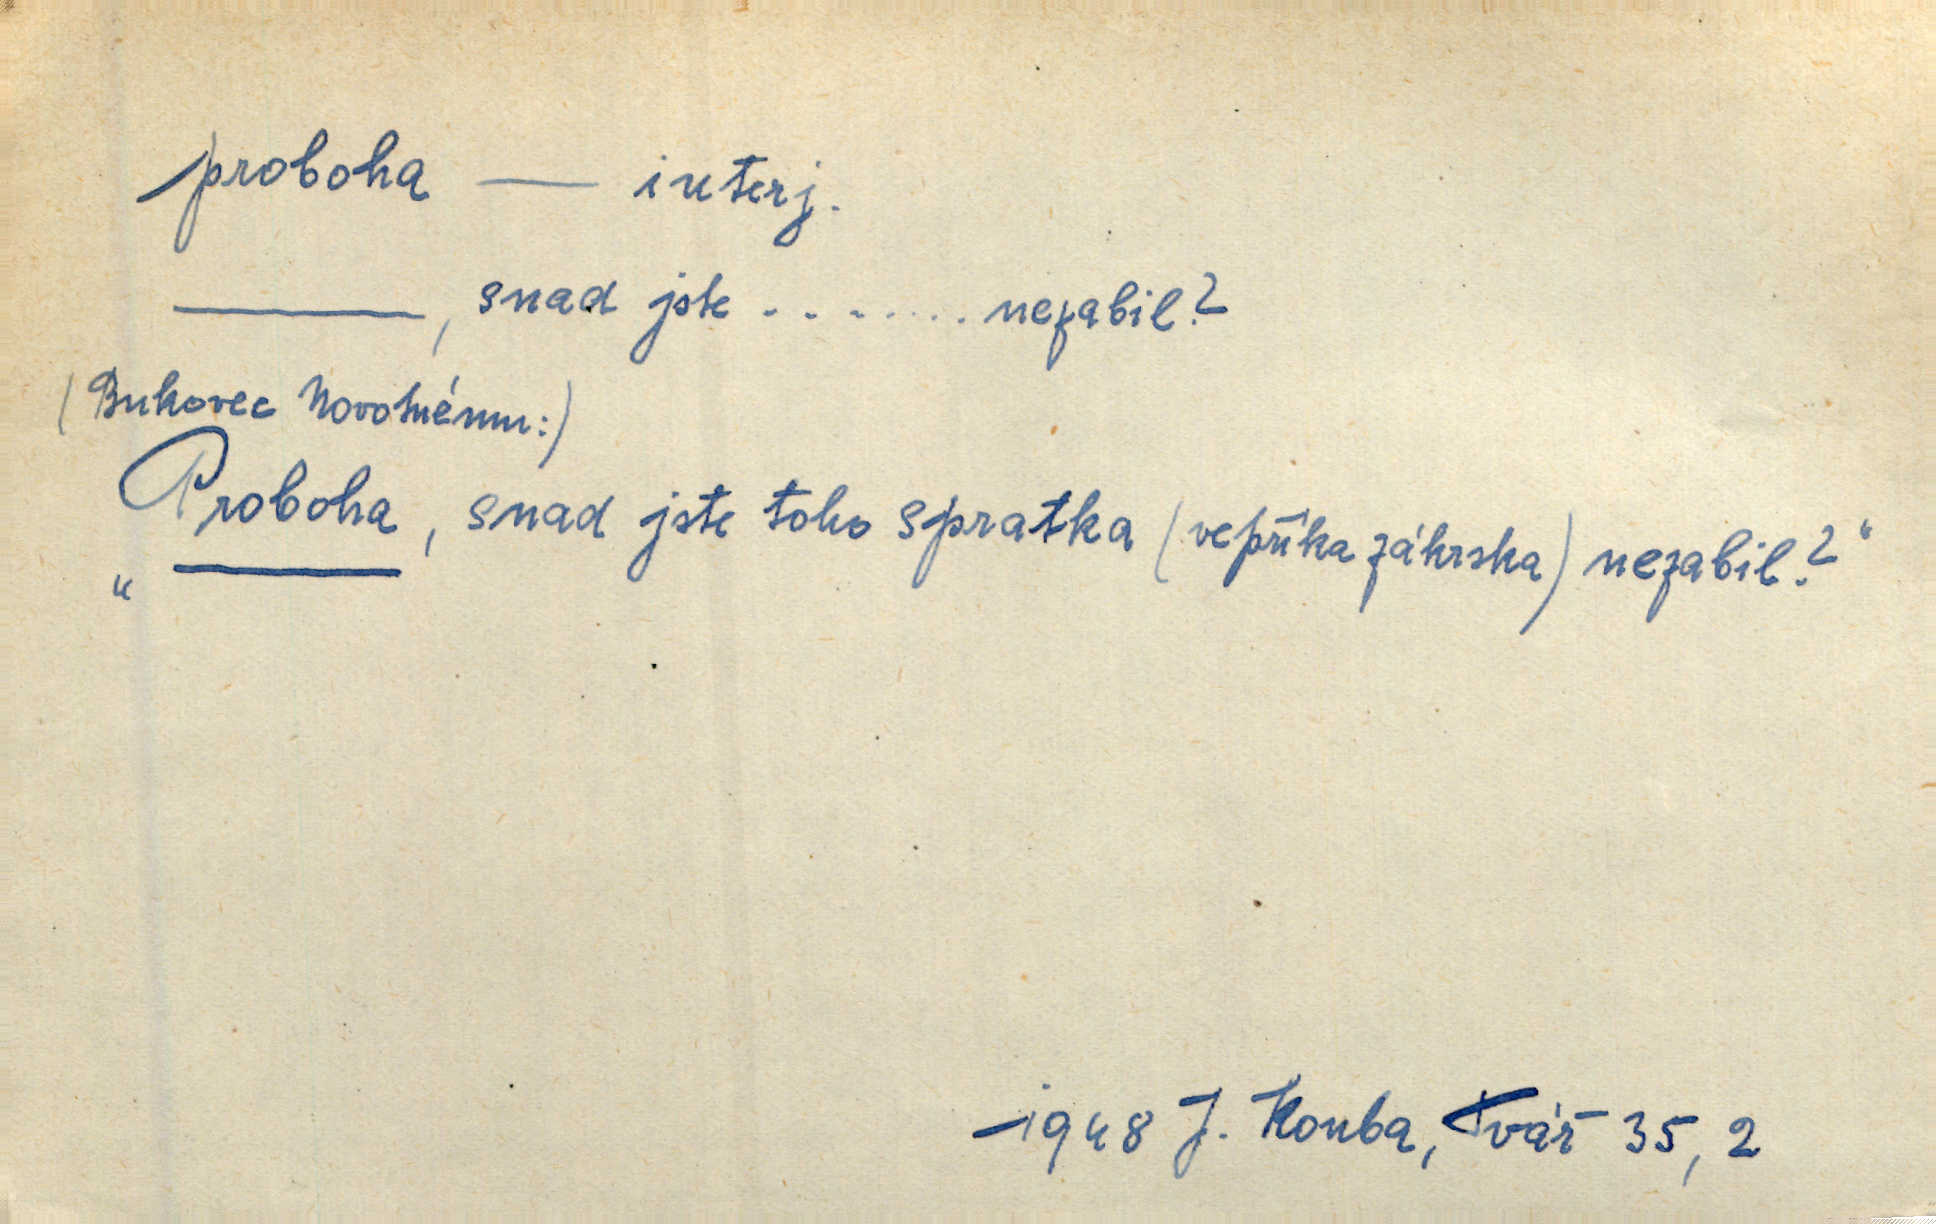 proboha — interj.
———, snad jste ........ nezabil?
(Bukovec Novotnému:)
„Proboha, snad jste toho spratka (vepříka zákrska) nezabil?“
1948 J. Kouba, Tvář 35, 2